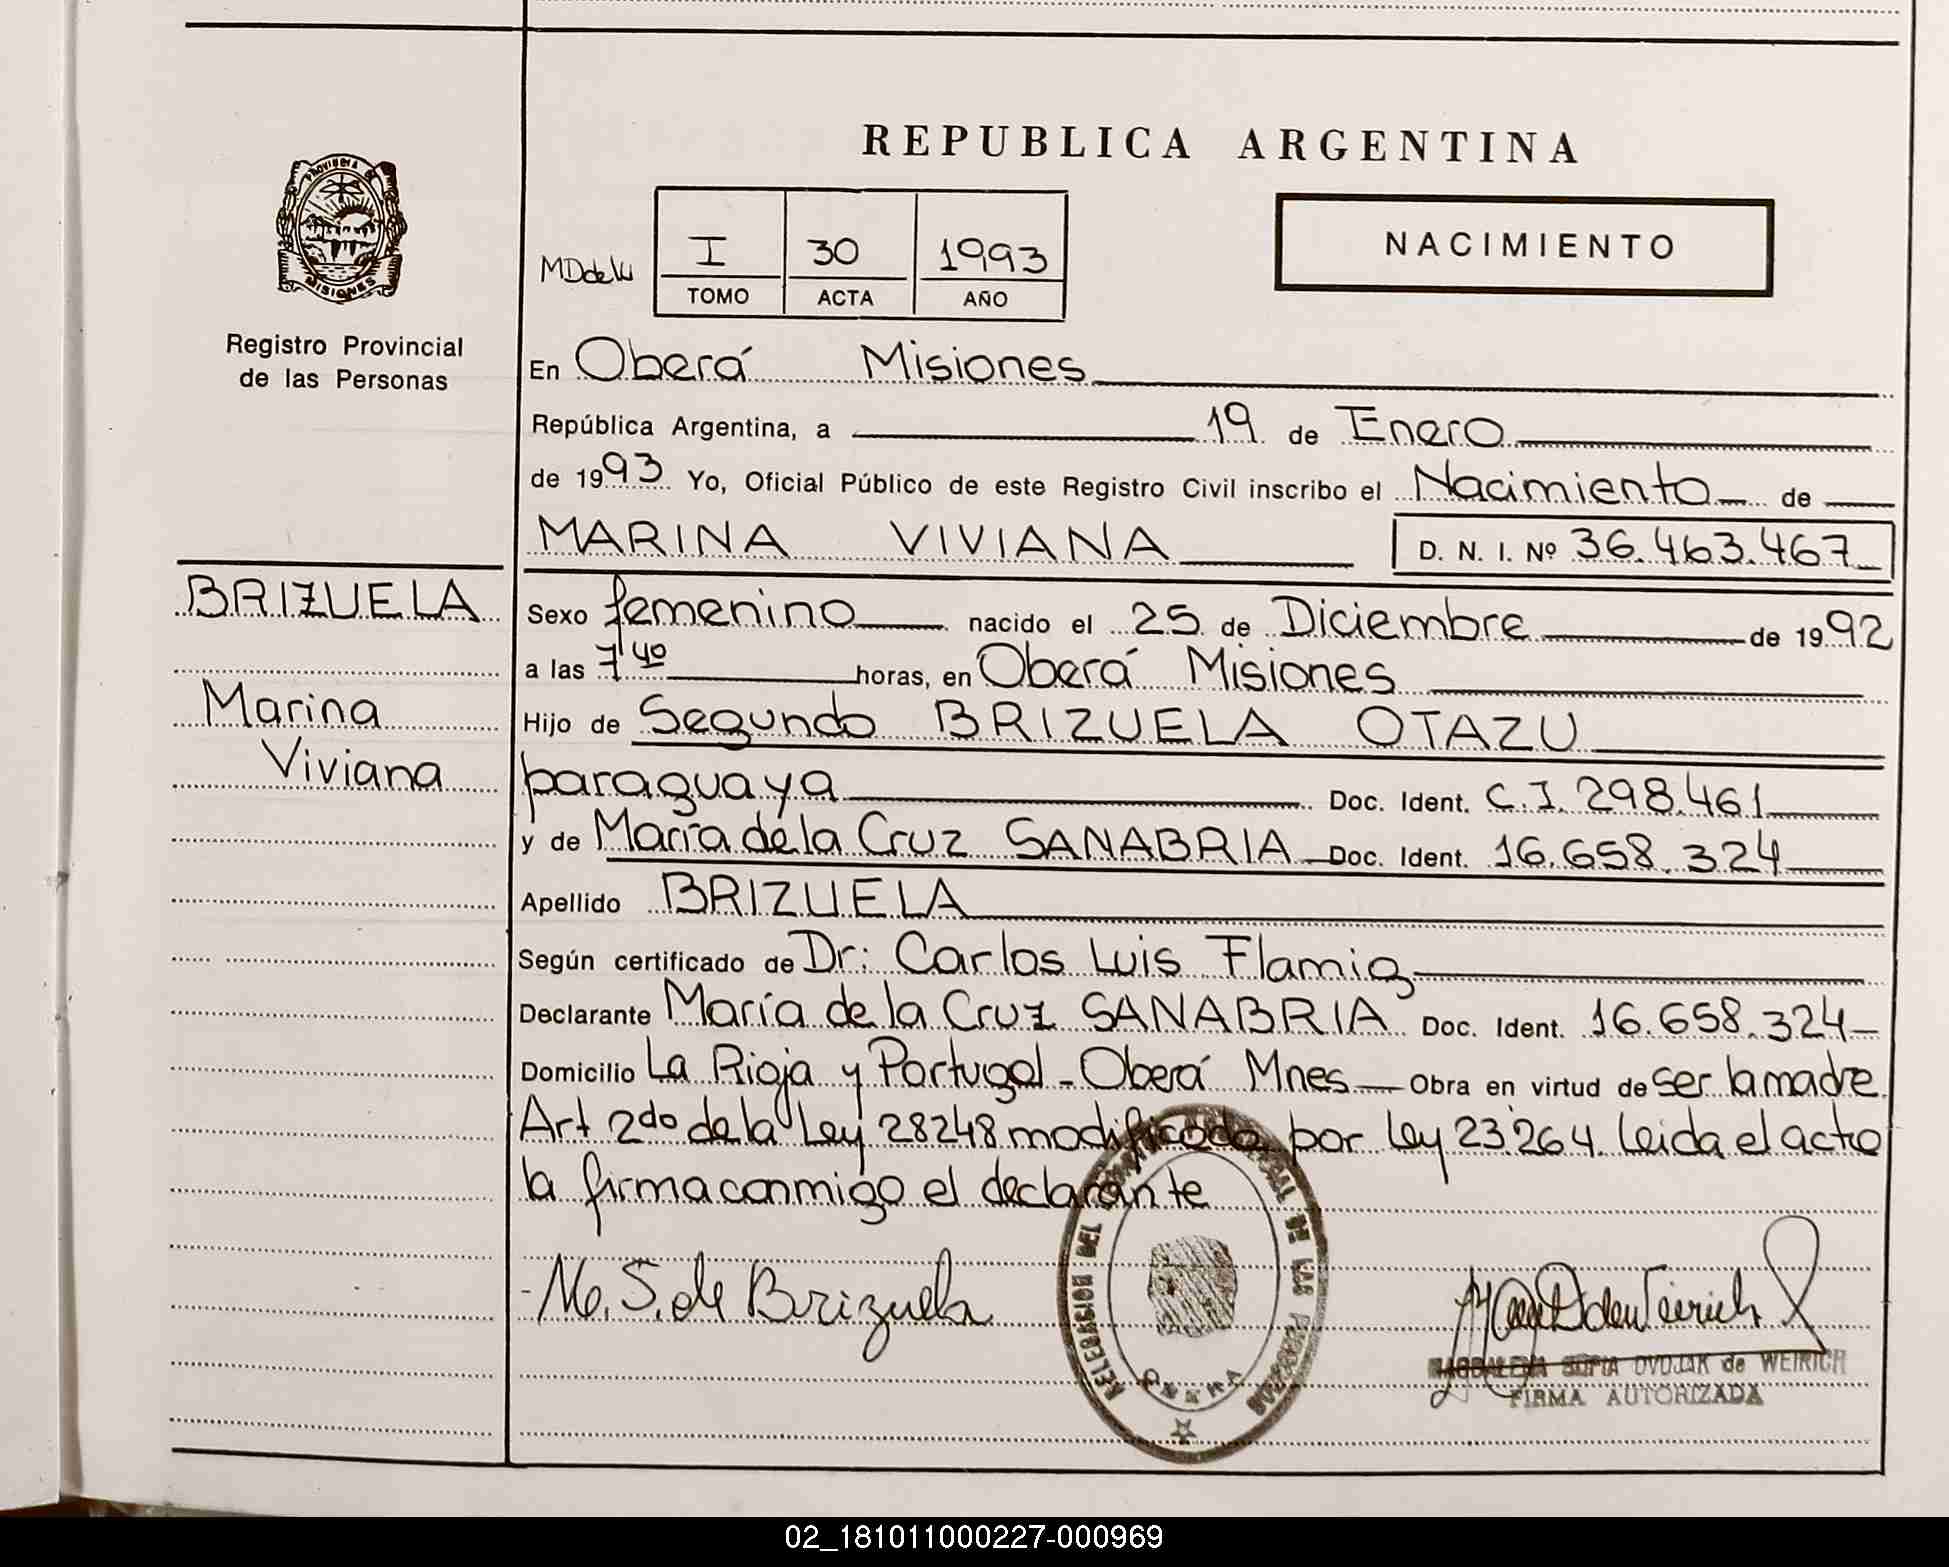 REPUBLICA ARGENTINA
PROVINCIA DE
MISIONES
Registro Provincial
de las Personas
MDdeW
I 30 1993
TOMO ACTA AÑO
NACIMIENTO
En Oberá Misiones
República Argentina, a 19 de Enero
de 1993 Yo, Oficial Público de este Registro Civil inscribo el Nacimiento de
MARINA VIVIANA D. N. I. Nº 36.463.467
BRIZUELA
Marina
Viviana
Sexo femenino nacido el 25 de Diciembre de 1992
a las 7'40 horas, en Oberá Misiones
Hijo de Segundo BRIZUELA OTAZU
paraguaya Doc. Ident. C.I. 298.461
y de María de la Cruz SANABRIA Doc. Ident. 16.658.324
Apellido BRIZUELA
Según certificado de Dr: Carlos Luis Flamig
Declarante María de la Cruz SANABRIA Doc. Ident. 16.658.324
Domicilio La Rioja y Portugal - Oberá Mnes Obra en virtud de ser la madre
Art 2do de la Ley 28248 modificado por Ley 23.264. Leida el acta
la firma conmigo el declarante
Ma. S. de Brizuela
MAGDALENA SOFIA DVOJAK de WEIRICH
FIRMA AUTORIZADA
02_181011000227-000969